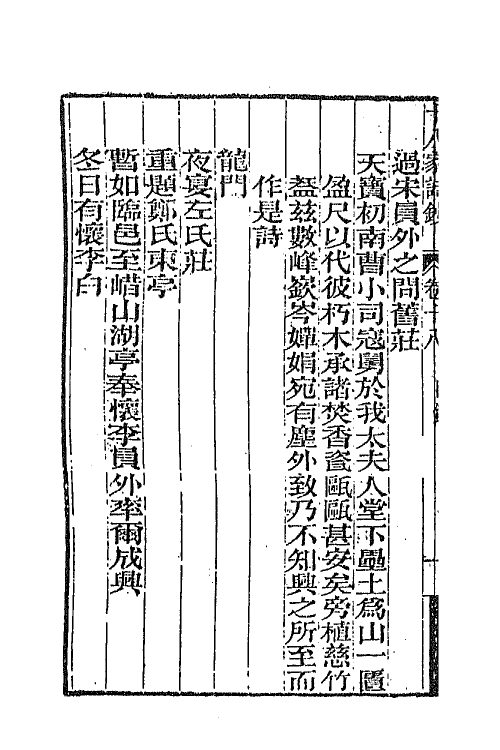 十八家詩鈔 卷十八 目錄 一
過宋員外之問舊莊
天寶初南曹小司寇舅於我太夫人堂下壘土為山一匱
盈尺以代彼朽木承諸焚香瓷甌甌甚安矣旁植慈竹
蓋茲數峰嶔岑嬋娟宛有塵外致乃不知興之所至而
作是詩
龍門
夜宴左氏莊
重題鄭氏東亭
暫如臨邑至㟙山湖亭奉懷李員外率爾成興
冬日有懷李白